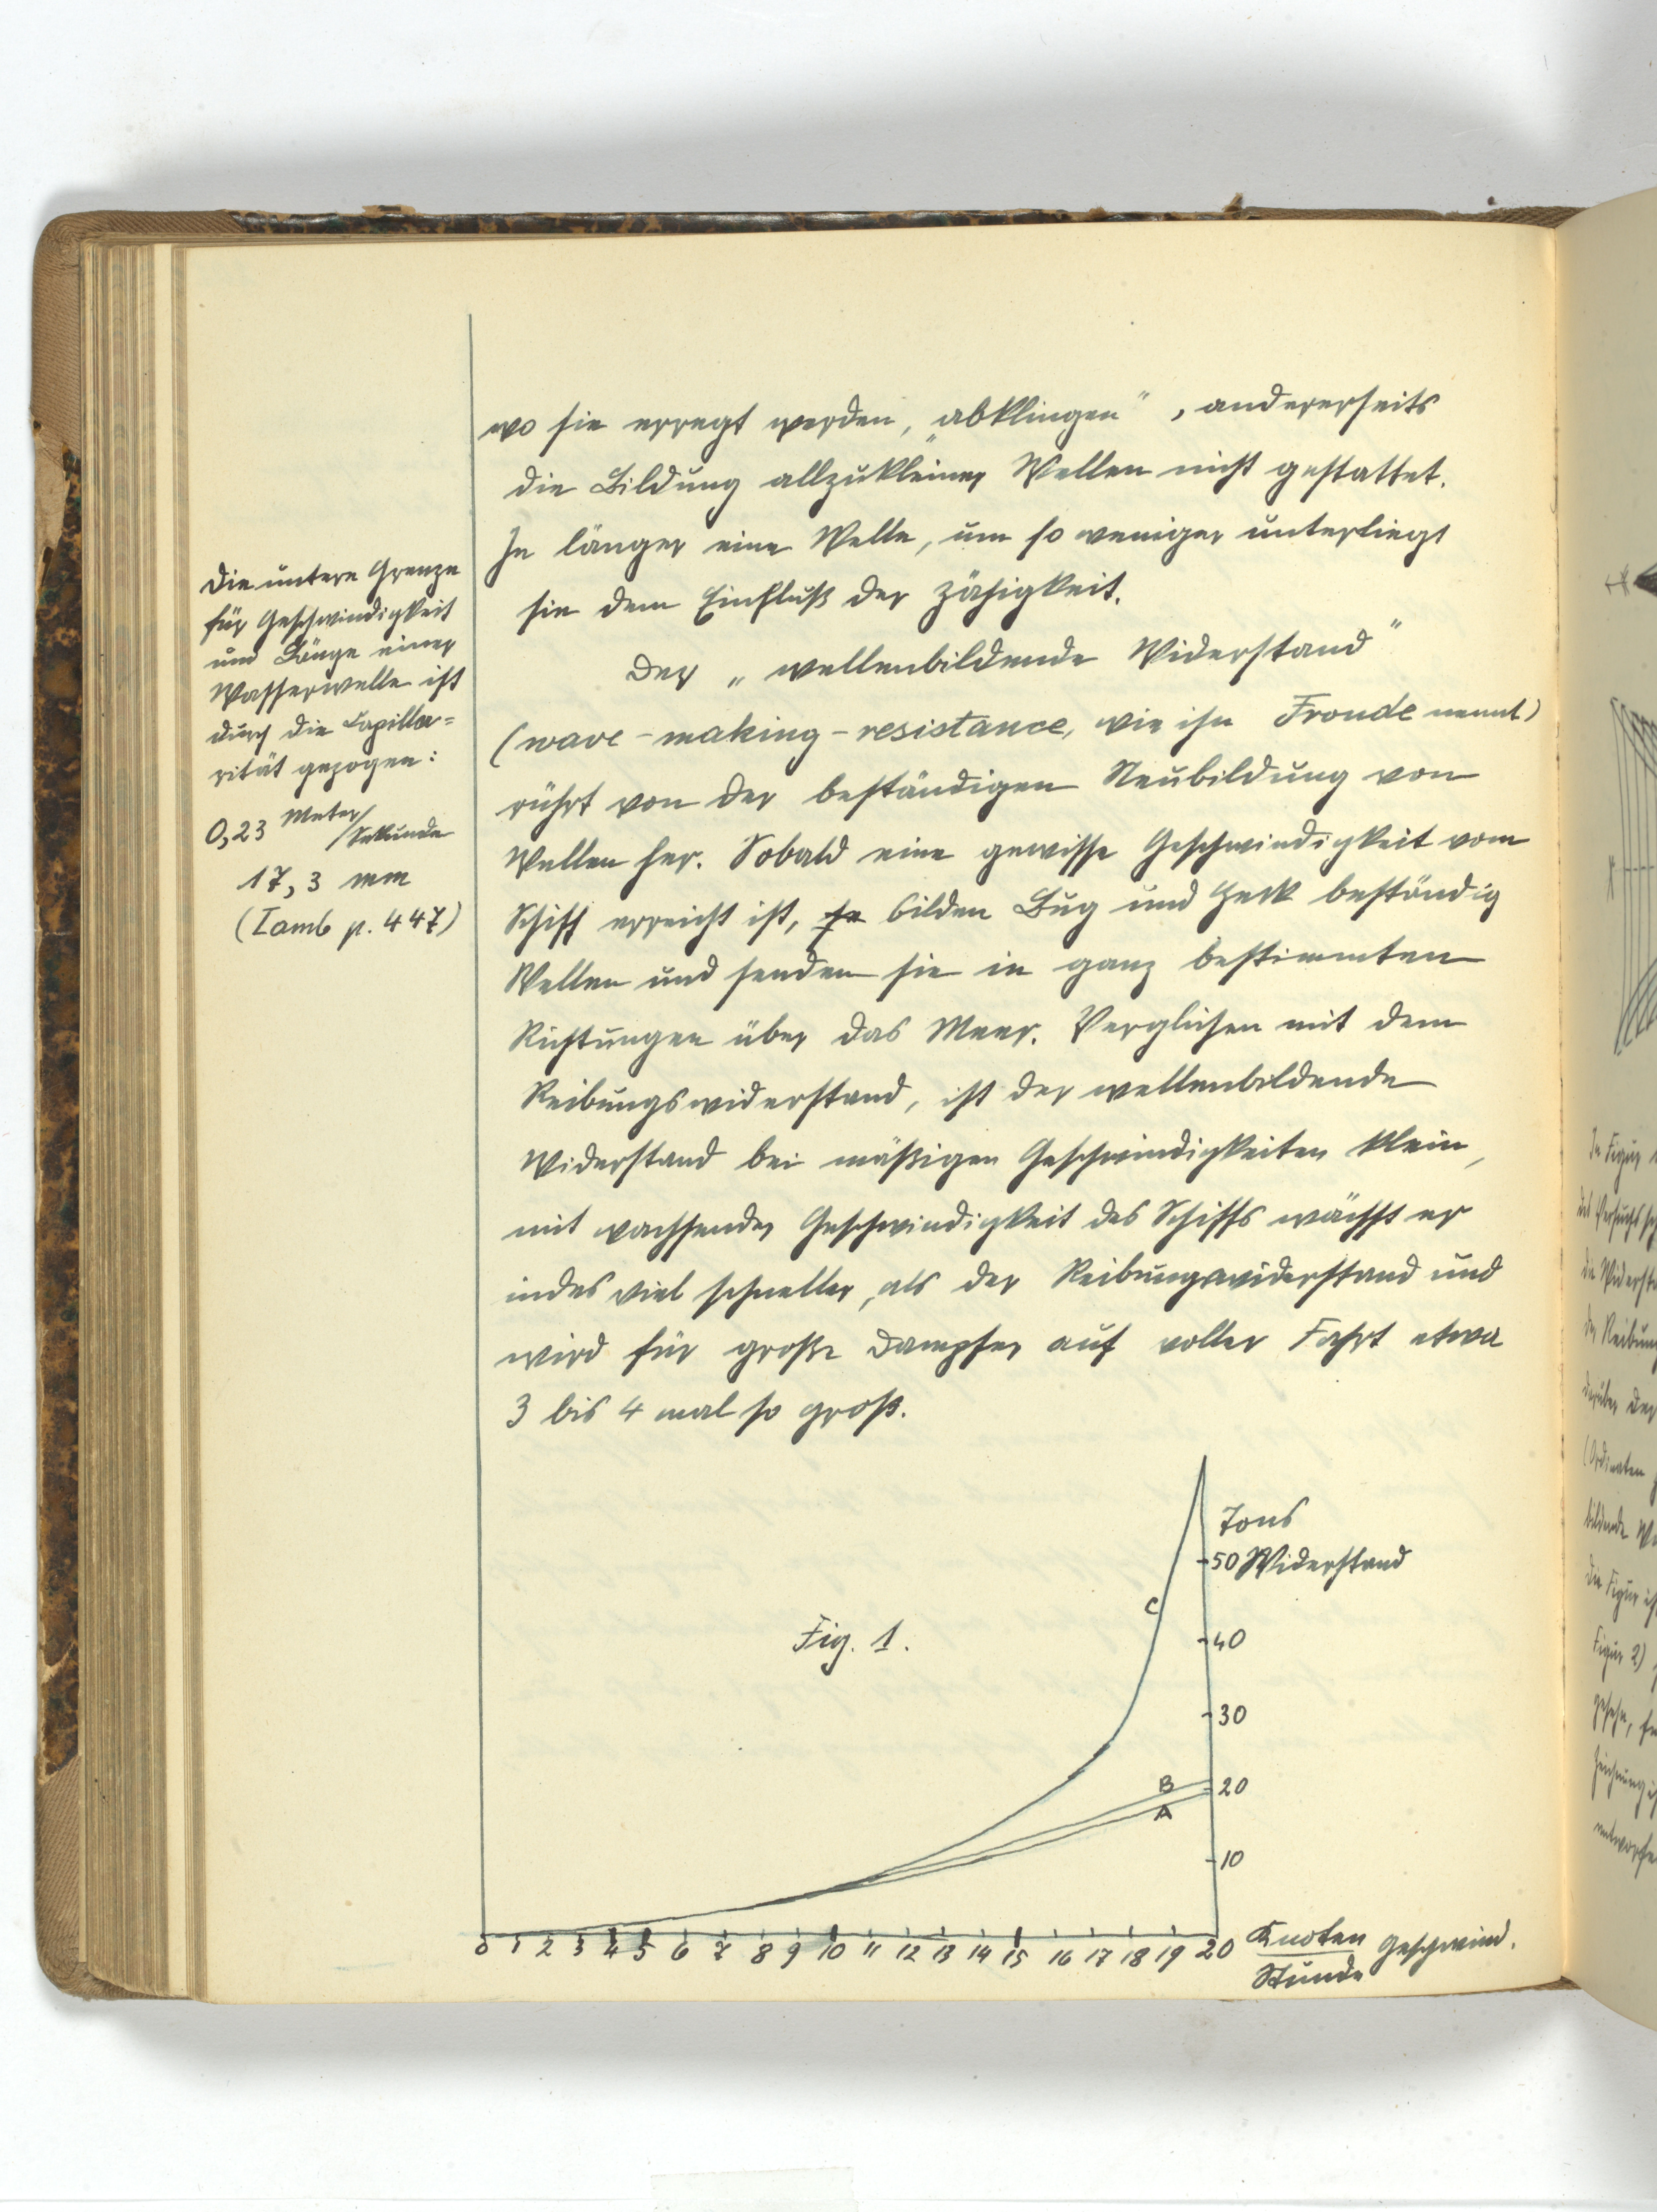 wo sie erregt werden, „abklingen“, andererseits
die Bildung allzukleiner Wellen nicht gestattet.
Je länger eine Welle, um so weniger unterliegt
sie dem Einfluß der Zähigkeit.
Der „wellenbildende Widerstand“
(wave-making-resistance, wie ihn Froude nennt)
rührt von der beständigen Neubildung von
Wellen her. Sobald eine gewisse Geschwindigkeit vom
Schiff erreicht ist, so bilden Bug und Heck beständig
Wellen und senden sie in ganz bestimmten
Richtungen über das Meer. Verglichen mit dem
Reibungswiderstand, ist der wellenbildende
Widerstand bei mäßigen Geschwindigkeiten klein,
mit wachsender Geschwindigkeit des Schiffs wächst er
indes viel schneller, als der Reibungswiderstand und
wird für große Dampfer auf voller Fahrt etwa
3 bis 4 mal so groß.
Die untere Grenze
für Geschwindigkeit
und Länge einer
Wasserwelle ist
durch die Capilla=
rität gezogen:
0,23 Meter/Sekunde
17,3 mm
(Lamb p. 447)
Fig. 1.
Tons
50 Widerstand
C
40
30
B
20
A
10
0 1 2 3 4 5 6 7 8 9 10 11 12 13 14 15 16 17 18 19 20 Knoten Geschwind.
Stunde
In Figur
des Versuchs
die
der Reibung
darüber der
(Ordinaten
bildende
die Figur
Figur 2)